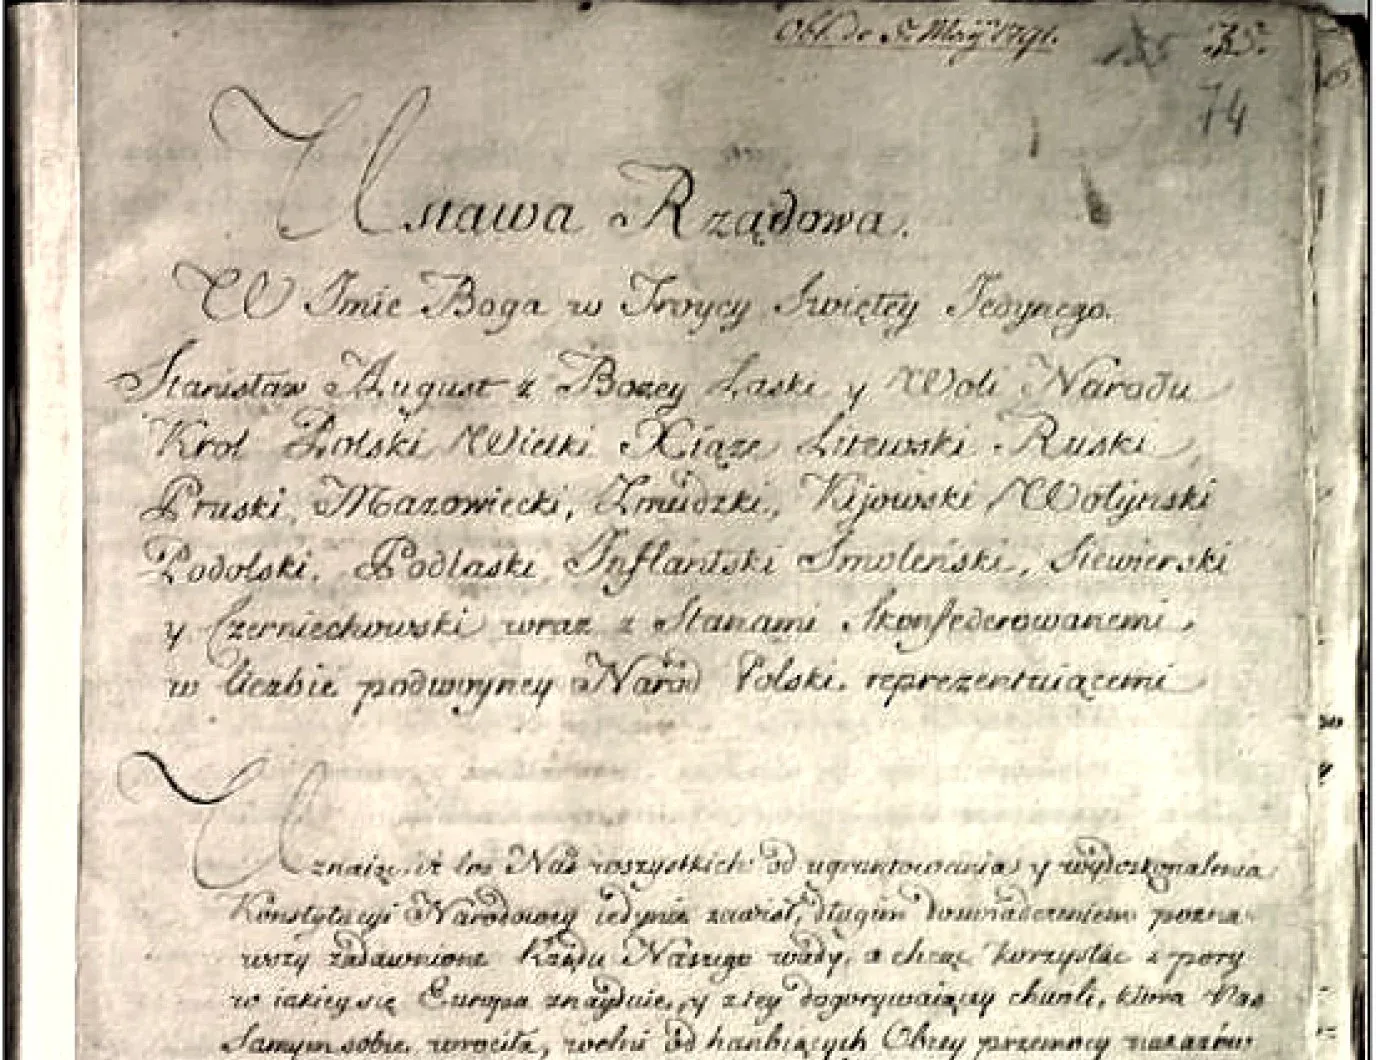 Obl. de 5. Maij 1791.
74
Ustawa Rządowa.
W Imie Boga w Troycy Swiętey Jedynego.
Stanisław August z Bozey Łaski y Woli Narodu
Krol Polski Wielki Xiąze Litewski Ruski,
Pruski, Mazowiecki, Zmudzki, Kijowski Wołyński
Podolski, Podlaski, Inflantski Smoleński, Siewierski
y Czerniechowski wraz z Stanami Skonfederowanemi,
w liczbie podwoyney Naród Polski reprezentuiącemi
Uznaiąc, iż los Nas wszystkich od ugruntowania y wydoskonalenia
Konstytucyi Narodowey iedynie zawisł, długim doswiadczeniem pozna-
wszy zadawnione Rządu Naszego wady, a chcąc korzystać z pory
w iakiey się Europa znayduie, y z tey dogorywaiącey chwili, ktora Nas
Samym sobie wrociła, wolni od hańbiących Obcey przemocy nakazów